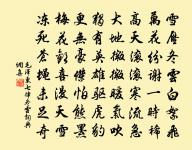 雪壓冬雲白絮飛
萬花紛謝一時稀
高天滾滾寒流急
大地微微暖氣吹
獨有英雄驅虎豹
更無豪傑怕熊羆
梅花歡喜漫天雪
凍死蒼蠅未足奇
毛澤東七律冬雲